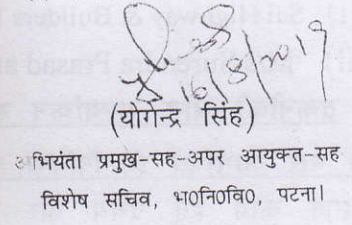 16/8/2019
(योगेन्द्र सिंह)
अभियंता प्रमुख-सह-अपर आयुक्त-सह
विशेष सचिव, भ०नि०वि०, पटना।